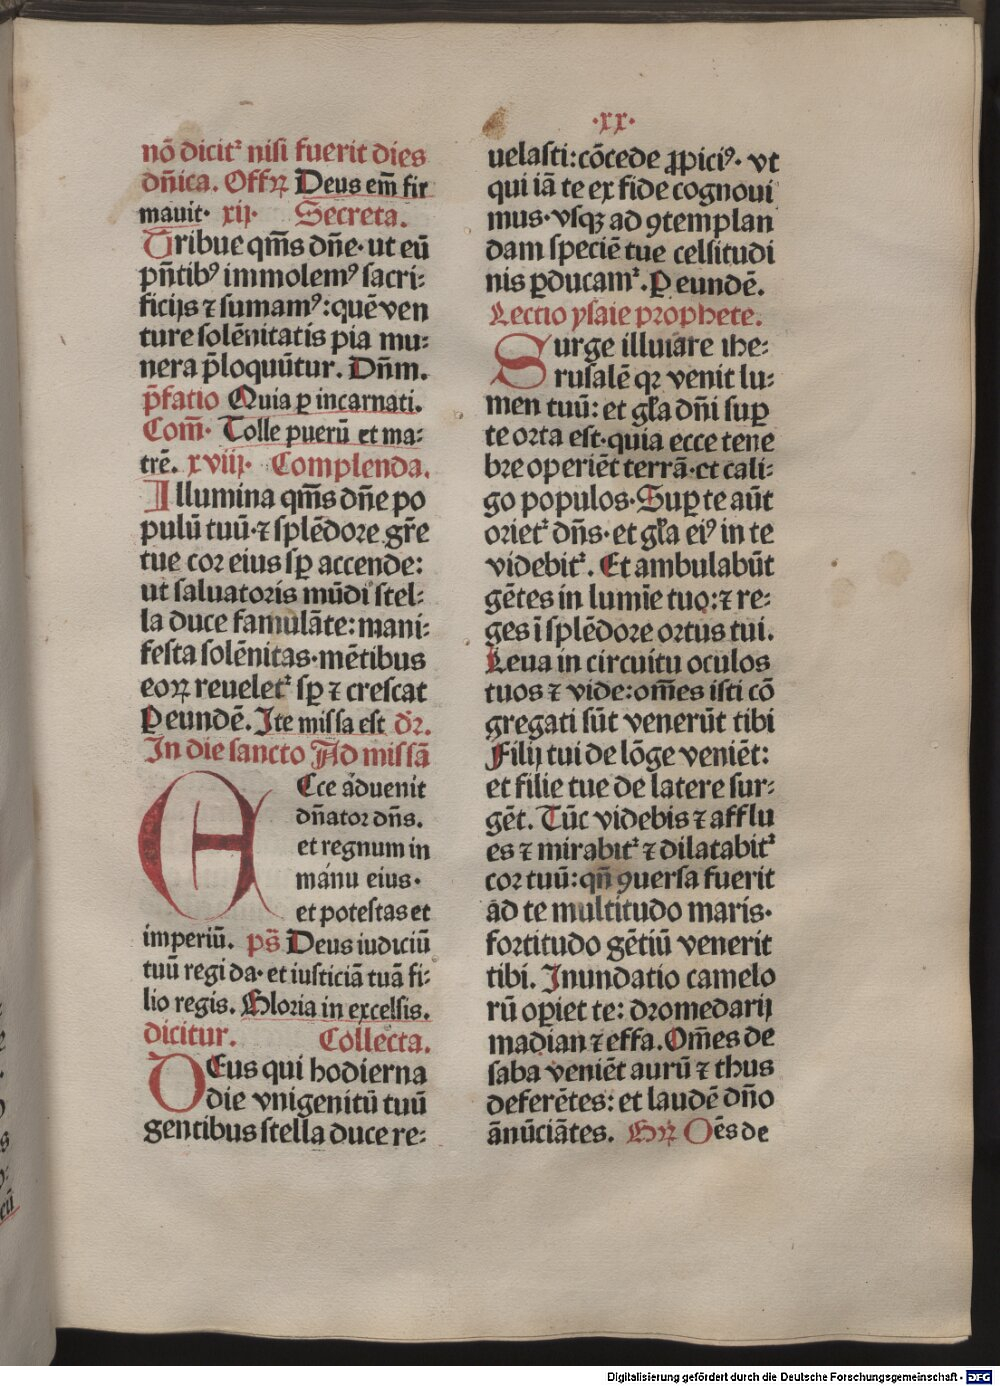 ·xx·
nō dicitꝛ nisi fuerit dies
dñica. Offꝝ Deus em̄ fir
mauit· xij. Secreta.
Tribue qm̄s dñe· ut eū
pñtibꝰ immolemꝰ sacri-
ficijs ⁊ sumamꝰ: quē ven
ture solēnitatis pia mu-
nera p̄loquūtur. Dñm.
p̄fatio Quia ꝑ incarnati.
Com̄· Tolle puerū et ma-
trē. xviij. Complenda.
Illumina qm̄s dñe po
pulū tuū·⁊ splēdore gr̄e
tue cor eius sꝑ accende:
ut saluatoris mūdi stel-
la duce famulāte: mani-
festa solēnitas·mētibus
eoꝝ reueletꝛ sꝑ ⁊ crescat
P eundē. Ite missa est dr̄.
In die sancto Ad missā
ECce aduenit
dñator dñs.
et regnum in
manu eius·
et potestas et
imperiū. ps̄ Deus iudiciū
tuū regi da· et iusticiā tuā fi-
lio regis. Gloria in excelsis.
dicitur. Collecta.
DEus qui hodierna
die vnigenitū tuū
gentibus stella duce re-
uelasti: cōcede ꝓpiciꝰ· vt
qui iā te ex fide cognoui
mus· vsqꝫ ad ꝯtemplan
dam speciē tue celsitudi
nis ꝑducamꝛ. P eundē.
Lectio ysaie prophete.
Surge illuiare ihe-
rusalē qꝛ venit lu-
men tuū: et gl̄a dñi suꝑ
te orta est· quia ecce tene
bre operiēt terrā· et cali-
go populos· Suꝑ te aūt
orietꝛ dñs· et gl̄a eiꝰ in te
videbitꝛ. Et ambulabūt
gētes in lumīe tuo: ⁊ re-
ges ī splēdore ortus tui.
Leua in circuitu oculos
tuos ⁊ vide: om̄es isti cō
gregati sūt venerūt tibi
Filij tui de lōge veniēt:
et filie tue de latere sur-
gēt. Tūc videbis ⁊ afflu
es ⁊ mirabitꝛ ⁊ dilatabitꝛ
cor tuū: qñ ꝯuersa fuerit
ad te multitudo maris·
fortitudo gētiū venerit
tibi. Inundatio camelo
rū oꝑiet te: dromedarij
madian ⁊ effa. Om̄es de
saba veniēt aurū ⁊ thus
deferētes: et laudē dño
ānūciātes. Gꝝ Oēs de
Digitalisierung gefördert durch die Deutsche Forschungsgemeinschaft - DFG